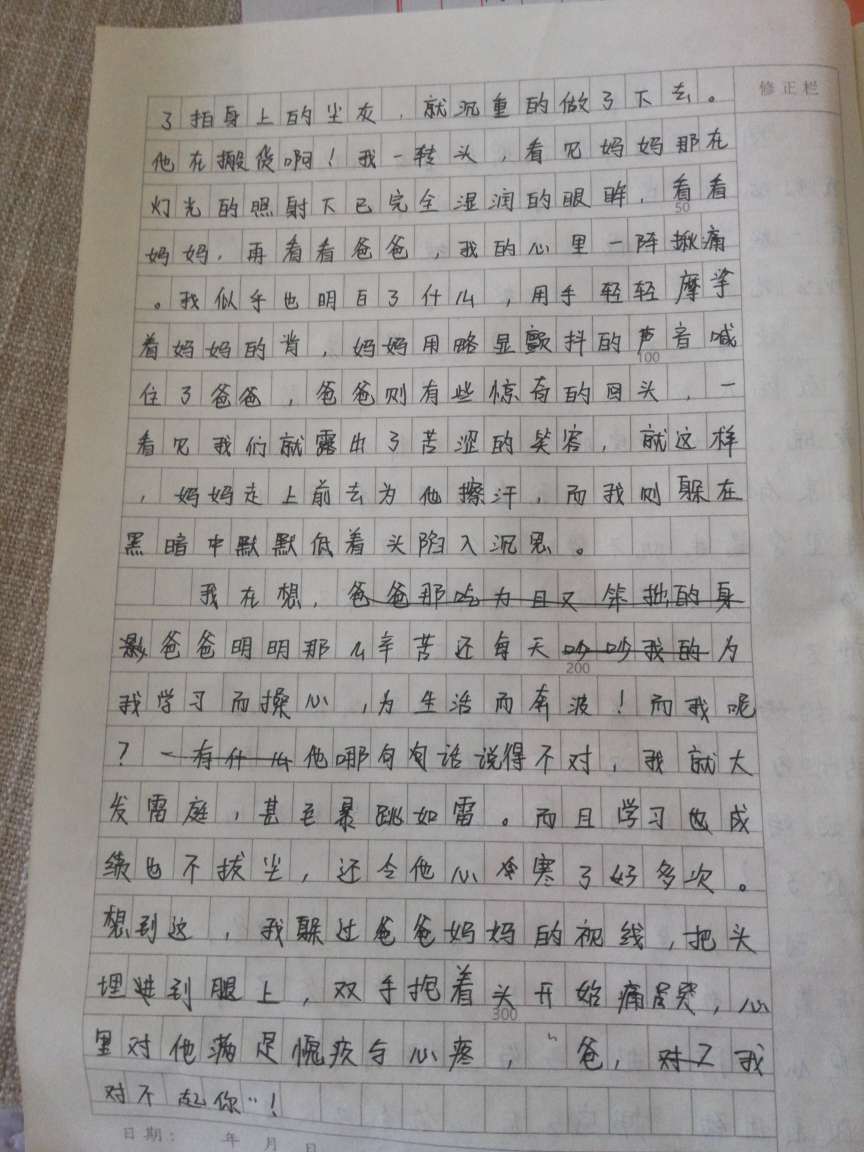 修正栏
了拍身上的尘灰，就沉重的做了下去。
他在搬货啊！我一转头，看见妈妈那在
灯光的照射下已完全湿润的眼眸，看看
50
妈妈，再看看爸爸，我的心里一阵揪痛
。我似乎也明白了什么，用手轻轻摩挲
着妈妈的背，妈妈用略显颤抖的声音喊
100
住了爸爸，爸爸则有些惊奇的回头，一
看见我们就露出了苦涩的笑容，就这样
，妈妈走上前去为他擦汗，而我则躲在
黑暗中默默低着头陷入沉思。
我在想，爸爸那吃为且又笨拙的身
影爸爸明明那么辛苦还每天吵吵我的为
200
我学习而操心，为生活而奔波！而我呢
？一有什么他哪句句话说得不对，我就大
发雷庭，甚至暴跳如雷。而且学习也成
绩也不拔尖，还令他心寒了好多次。
想到这，我躲过爸爸妈妈的视线，把头
埋进到腿上，双手抱着头开始痛哭，心
300
里对他满是愧疚与心疼，“爸，对不我
对不起你”！
日期： 年 月 日